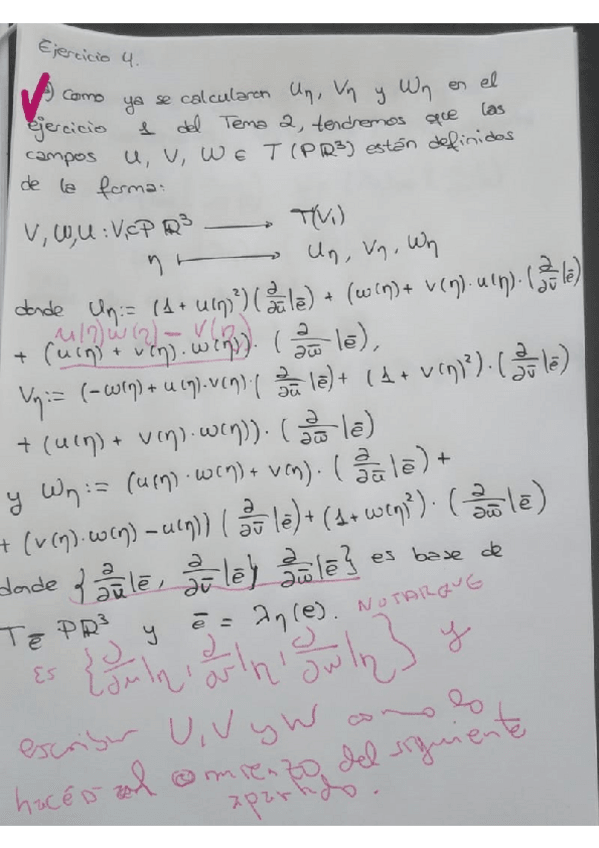 Ejercicio 4.
a) Como ya se calcularon Uη, Vη y Wη en el
ejercicio 1 del Tema 2, tendremos que los
campos U, V, W ∈ T(PℝR³) están definidos
de la forma:
V, W, U : V₁⊂PℝR³ ⟶ T(V₁)
η ⟼ Uη, Vη, Wη
donde Uη := (1 + u(η)²)(∂/∂ū|ē) + (w(η) + v(η)·u(η)·(∂/∂v̄|ē)
u(η)w(η) − v(η)
+ (u(η) + v(η)·w(η))·(∂/∂w̄|ē),
Vη := (−w(η) + u(η)·v(η)·(∂/∂ū|ē) + (1 + v(η)²)·(∂/∂v̄|ē)
+ (u(η) + v(η)·w(η))·(∂/∂w̄|ē)
y Wη := (u(η)·w(η) + v(η)·(∂/∂ū|ē) +
+ (v(η)·w(η) − u(η))(∂/∂v̄|ē) + (1 + w(η)²)·(∂/∂w̄|ē)
donde {∂/∂ū|ē, ∂/∂v̄|ē, ∂/∂w̄|ē} es base de
Tē PℝR³ y ē = λη(e). NOTAR QUE
ES {∂/∂u|η, ∂/∂v|η, ∂/∂w|η} y
escribir U, V y W como lo
hacéis al comienzo del siguiente
apartado.